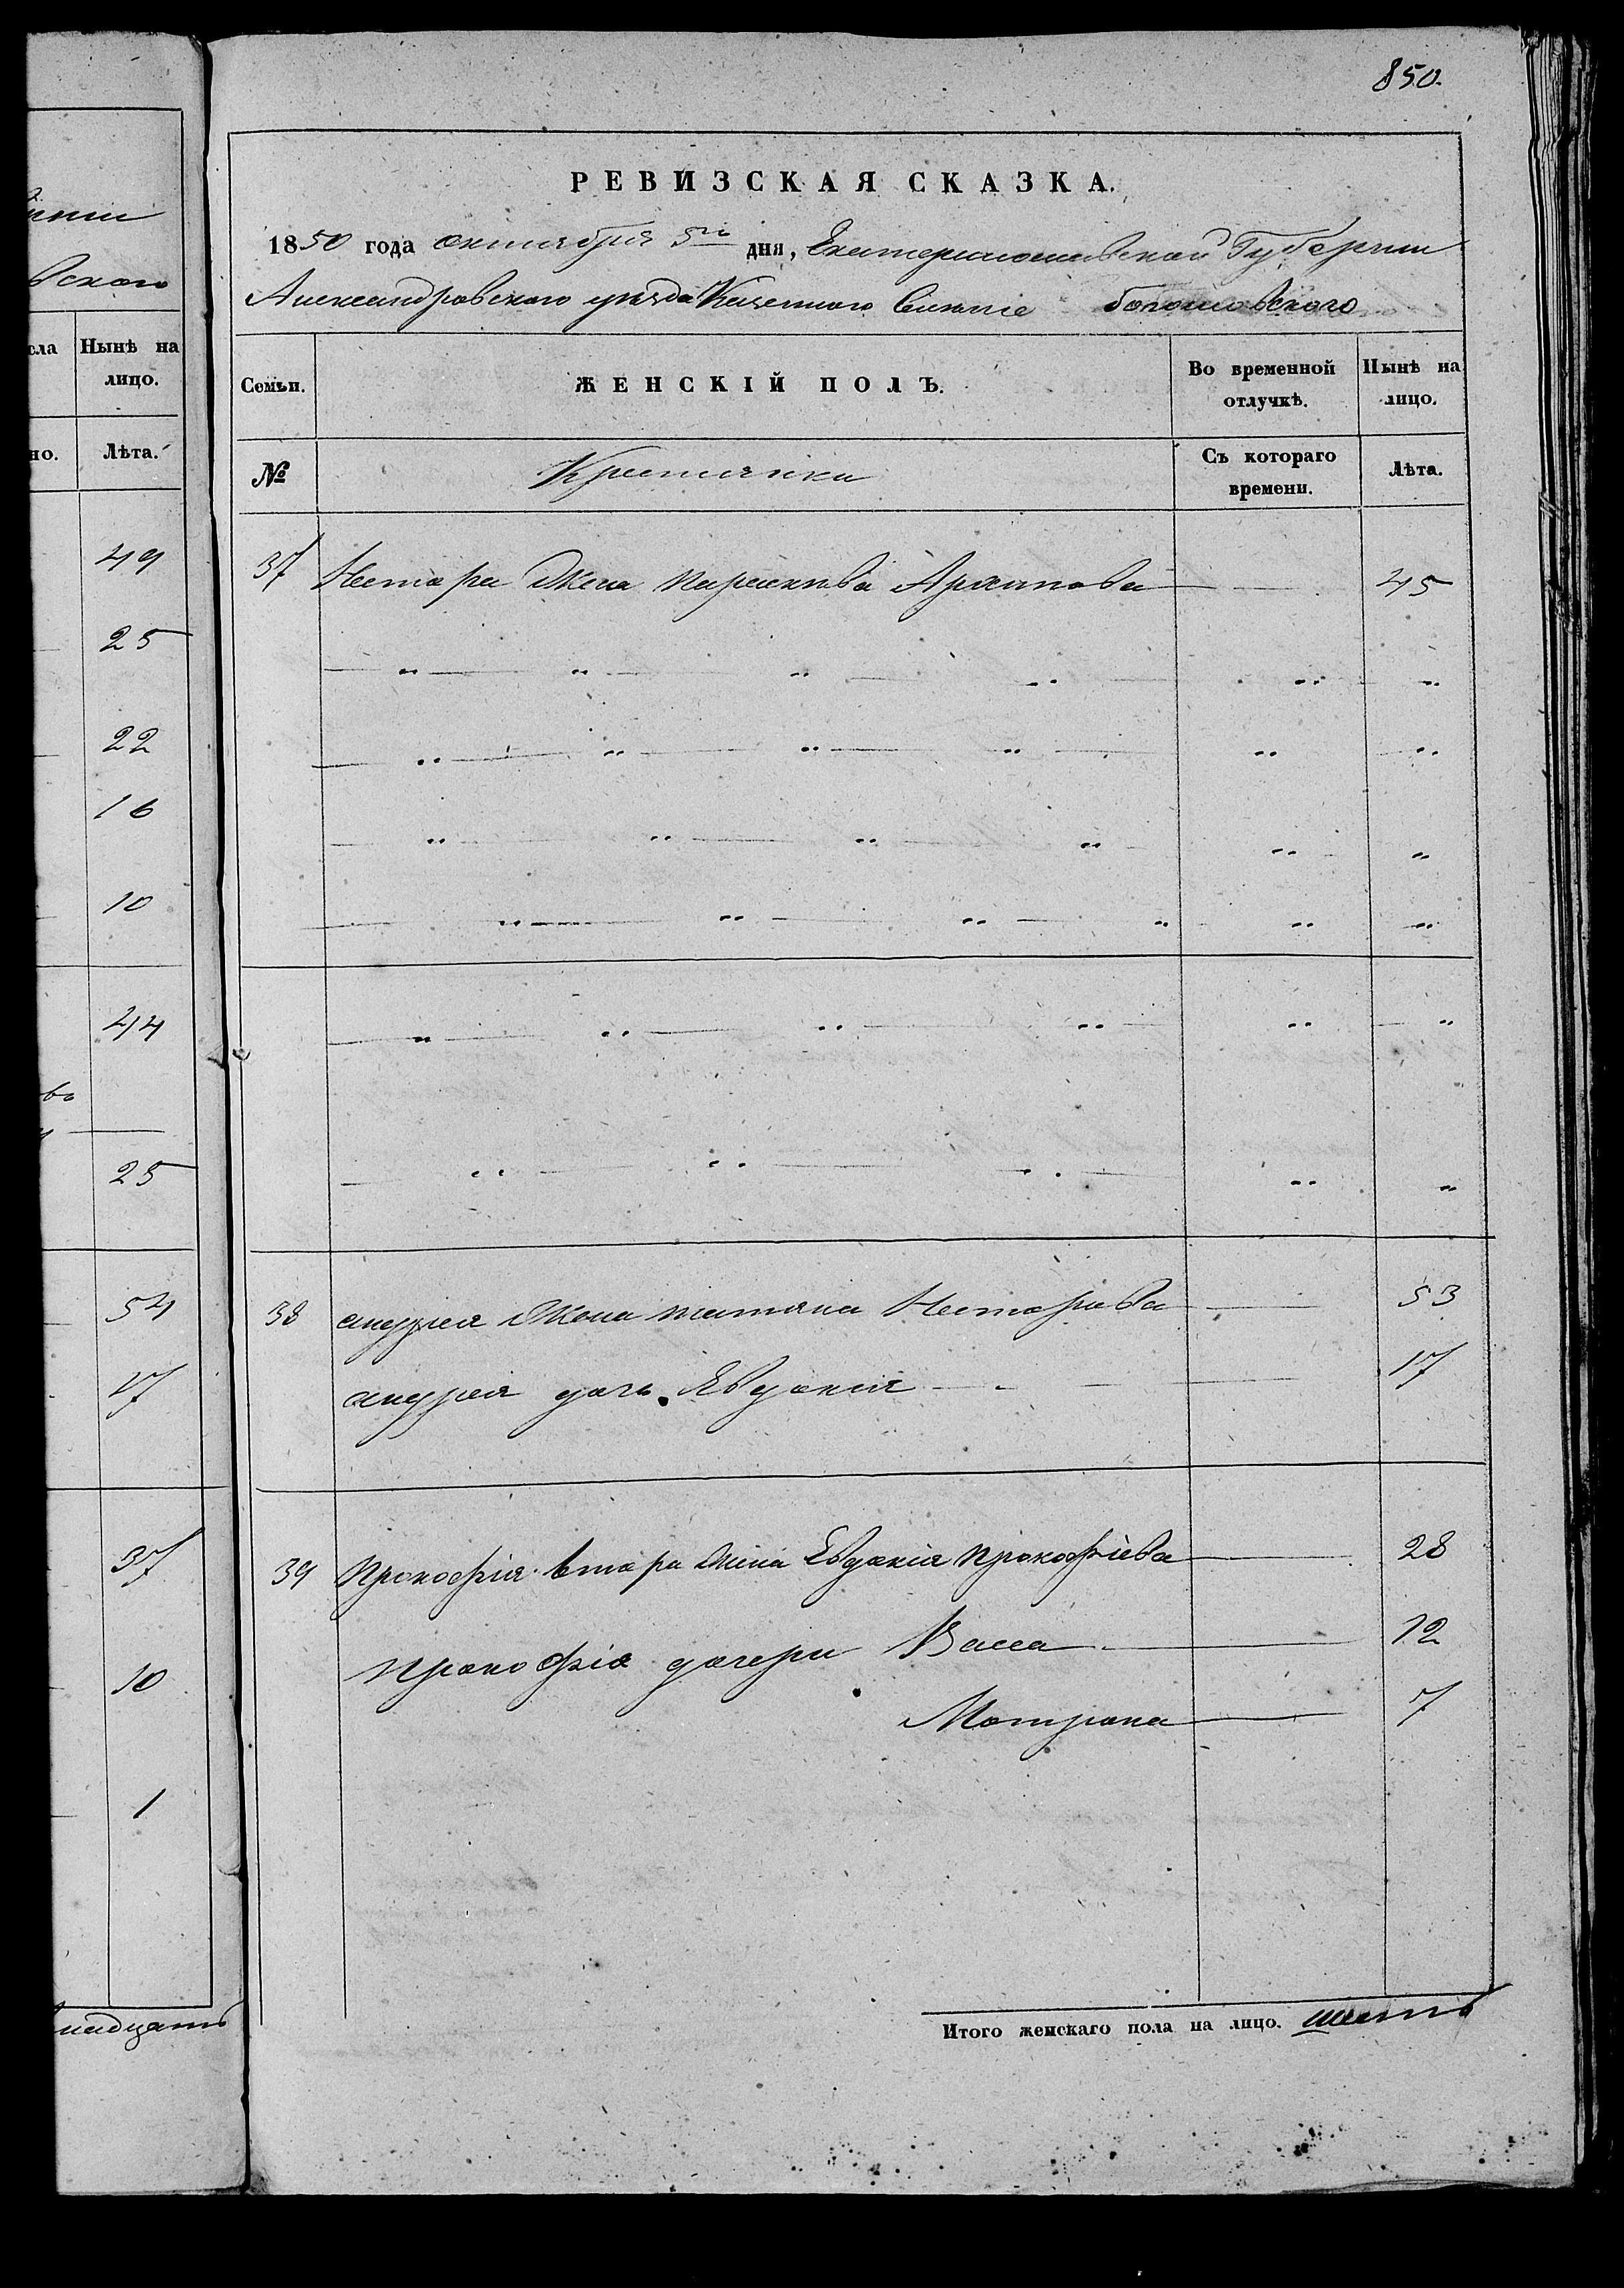 нии
вского
850.
РЕВИЗСКАЯ СКАЗКА.
1850 года октября 5го дня, Екатеринославской Губернии
Александровского уезда Казенного
сла
Нынѣ на лицо.
но.
Лѣта.
Семьи.
ЖЕНСКІЙ ПОЛЪ.
Во временной отлучкѣ.
Нынѣ на лицо.
№
Крестянки
Съ котораго времени.
Лѣта.
49
25
22
16
10
44
во
25
54
17
37
10
1
надцать
37 Нестора Жена Параскива Архипова 45
38 андрея Жена татяна Нестерова 53
андрея дочь Явдокия 17
39 Прокофія втора жена Евдокія Прокофіева 28
Прокофія дочери Васса 12
Мотрона 7
Итого женскаго пола на лицо. шесть